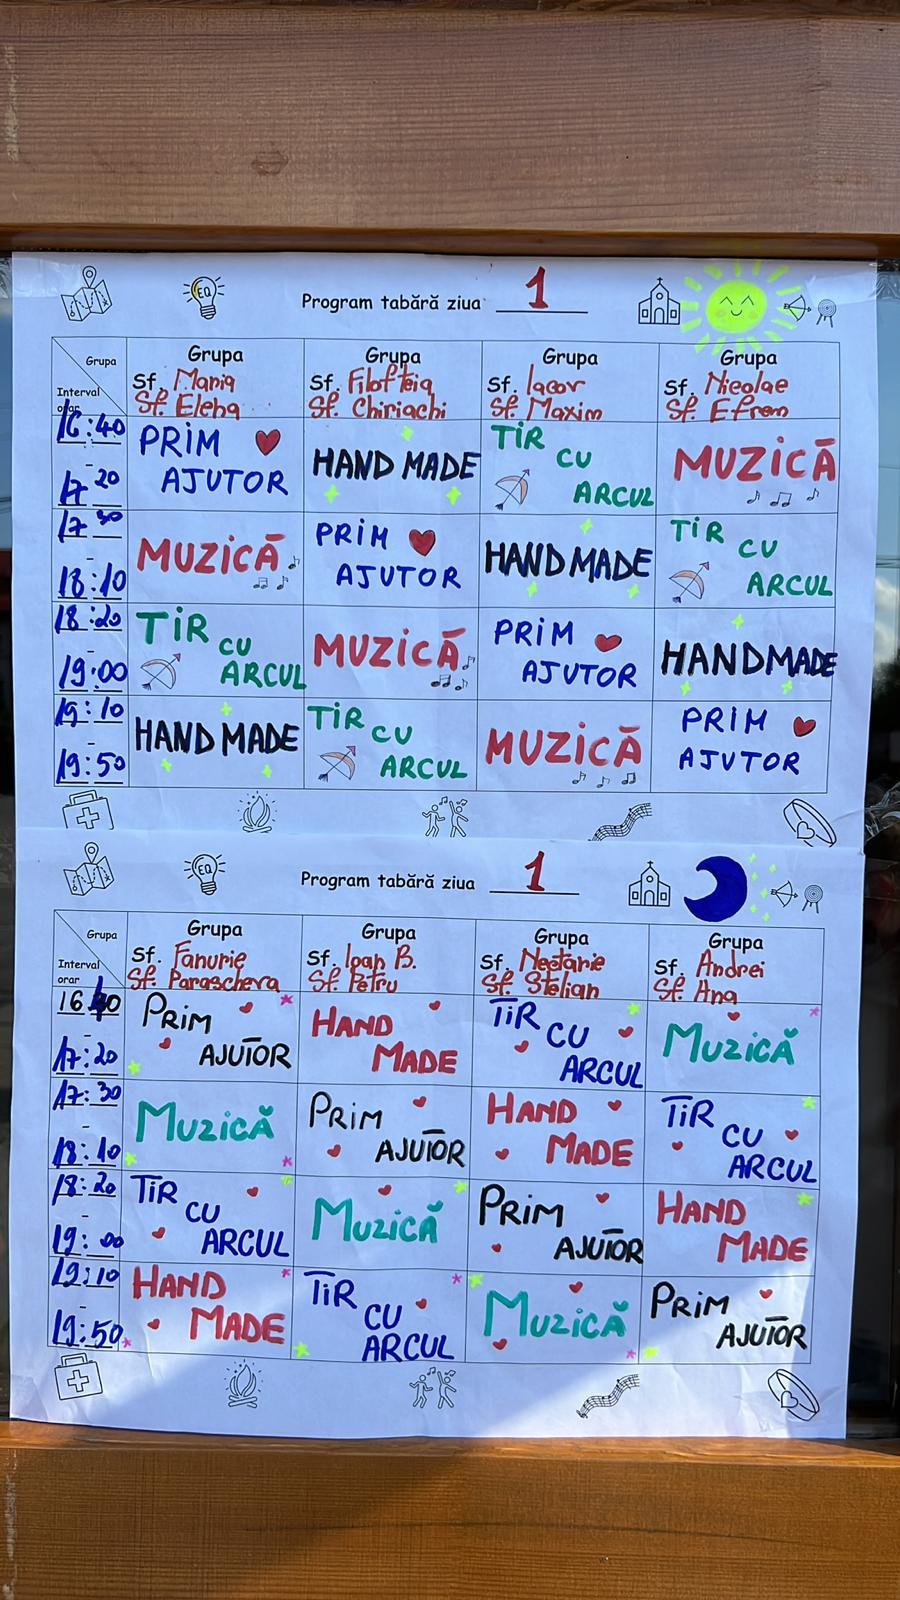 EQ
Program tabără ziua 1
Grupa
Interval
orar
Grupa
Sf. Maria
Sf. Elena
Grupa
Sf. Filofteia
Sf. Chiriachi
Grupa
Sf. Iacov
Sf. Maxim
Grupa
Sf. Nicolae
Sf. Efrem
16:40
-
17 20
PRIM
AJUTOR
HAND MADE
TIR
CU
ARCUL
MUZICĂ
17 30
-
18:10
MUZICĂ
PRIM
AJUTOR
HAND MADE
TIR
CU
ARCUL
18:20
-
19:00
TIR
CU
ARCUL
MUZICĂ
PRIM
AJUTOR
HANDMADE
19:10
-
19:50
HAND MADE
TIR
CU
ARCUL
MUZICĂ
PRIM
AJUTOR
EQ
Program tabără ziua 1
Grupa
Interval
orar
Grupa
Sf. Fanurie
Sf. Parascheva
Grupa
Sf. Ioan B.
Sf. Petru
Grupa
Sf. Nectarie
Sf. Stelian
Grupa
Sf. Andrei
Sf. Ana
16:40
-
17:20
PRIM
AJUTOR
HAND
MADE
TIR
CU
ARCUL
MUZICĂ
17:30
-
18:10
MUZICĂ
PRIM
AJUTOR
HAND
MADE
TIR
CU
ARCUL
18:20
-
19:00
TIR
CU
ARCUL
MUZICĂ
PRIM
AJUTOR
HAND
MADE
19:10
-
19:50
HAND
MADE
TIR
CU
ARCUL
MUZICĂ
PRIM
AJUTOR